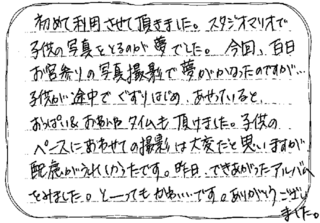 初めて利用させて頂きました。スタジオマリオで
子供の写真をとるのが夢でした。今回、百日
お宮参りの写真撮影で夢がかなったのですが…
子供が途中でぐずりはじめ、あやっていると、
おっぱい&おむつタイムも頂けました。子供の
ペースにあわせての撮影は大変だと思いますが
配慮がうれしかったです。昨日、できあがったアルバム
をみました。とーってもかわいいです。ありがとうござい
ました。